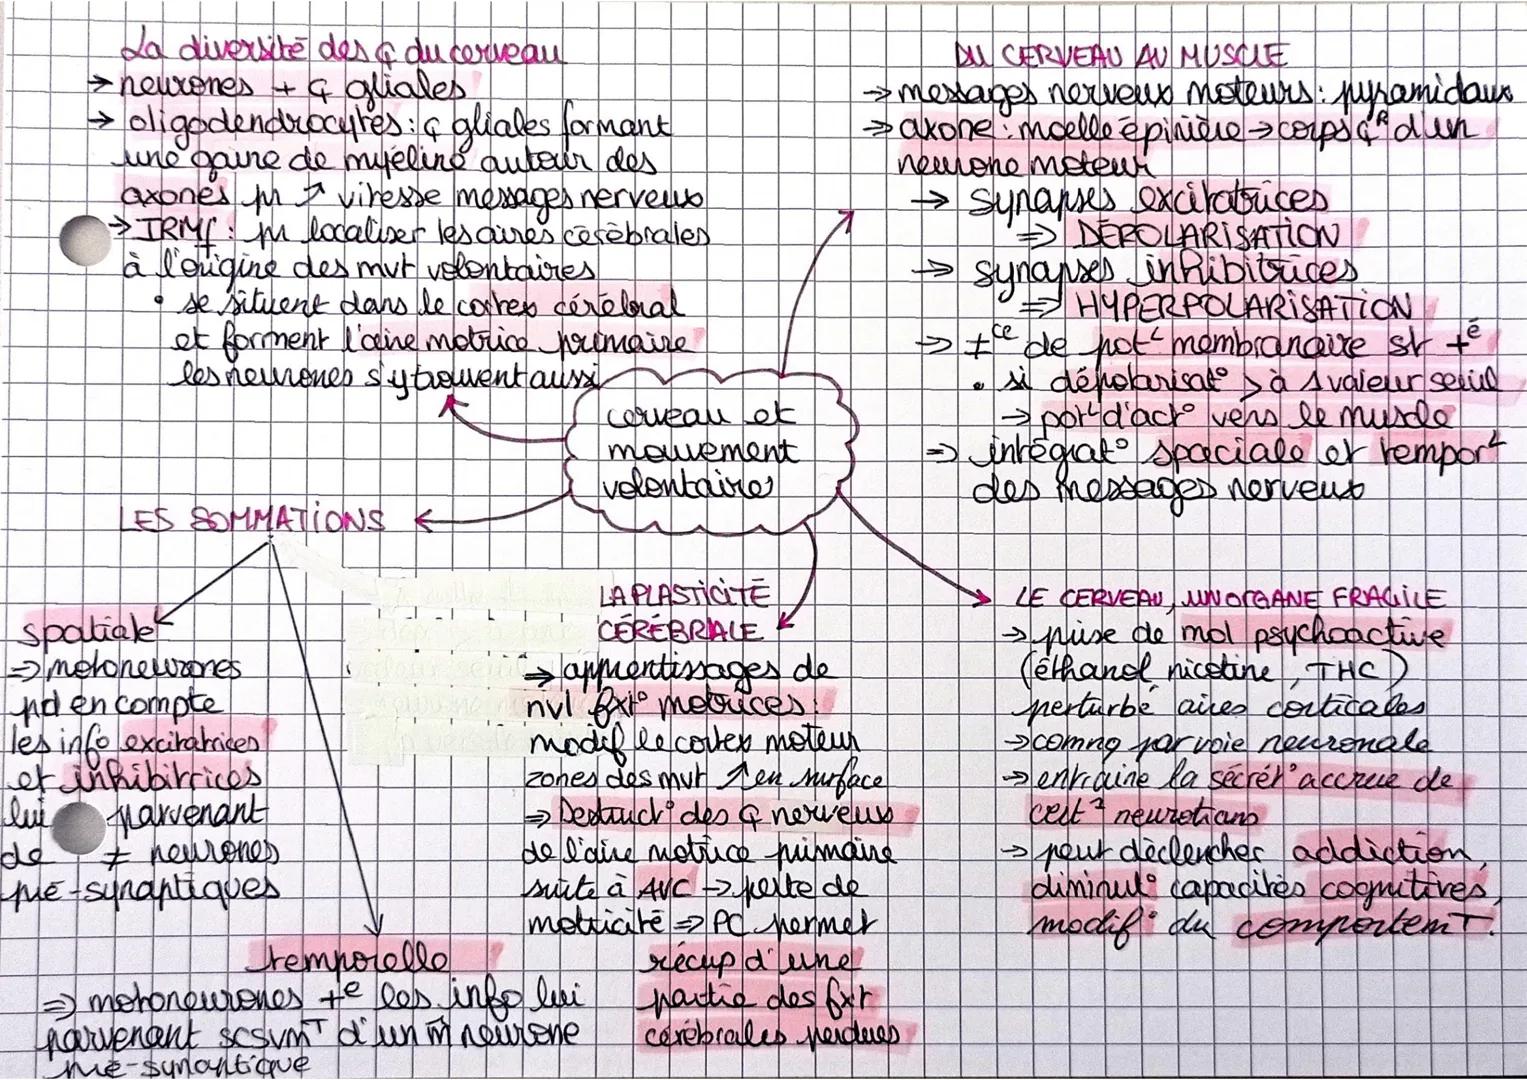 La diversité des ¢ du cerveau
→ neurones + ¢ gliales
→ oligodendrocytes : ¢ gliales formant
une gaine de myéline autour des
axones pr ↗ vitesse messages nerveux
→ IRMf : pr localiser les aires cérébrales
à l'origine des mvt volontaires
• se situent dans le cortex cérébral
et forment l'aire motrice primaire
les neurones s'y trouvent aussi
DU CERVEAU AU MUSCLE
→ messages nerveux moteurs : pyramidaux
→ axone : moelle épinière → corps ¢R d'un
neurone moteur
→ synapses excitatrices
⇒ DÉPOLARISATION
→ synapses inhibitrices
⇒ HYPERPOLARISATION
→ ≠ce de potL membranaire st +é
• si dépolarisat° > à 1 valeur seuil
→ potL d'act° vers le muscle
⇒ intégrat° spaciale et temporL
des messages nerveux
cerveau et
mouvement
volontaires
LES SOMMATIONS
spatiale
⇒ motoneurones
pd en compte
les info excitatrices
et inhibitrices
lui parvenant
de ≠ neurones
pré-synaptiques
temporelle
⇒ motoneurones +e les info lui
parvenant scsvmT d'un m̂ neurone
pré-synaptique
LA PLASTICITÉ
CÉRÉBRALE
⇒ apprentissages de
nvl fxt° motrices :
modif le cortex moteur
zones des mvt ↗ en surface
⇒ Destruct° des ¢ nerveus
de l'aire motrice primaire
suite à AVC → perte de
motricité ⇒ PC permet
récup d'une
partie des fxt
cérébrales perdues
LE CERVEAU, UN ORGANE FRAGILE
→ prise de mol psychoactive
(éthanol, nicotine, THC)
perturbe aires corticales
→ comnq par voie neuronale
→ entraine la sécrét° accrue de
cert² neurotians
→ peut déclencher addiction,
diminut° capacités cognitives,
modif° du comportemT.